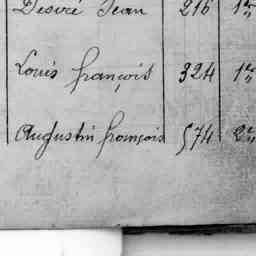 Desiré Jean 216 1er
Louis françois 324 1er
Augustin françois 574 2e